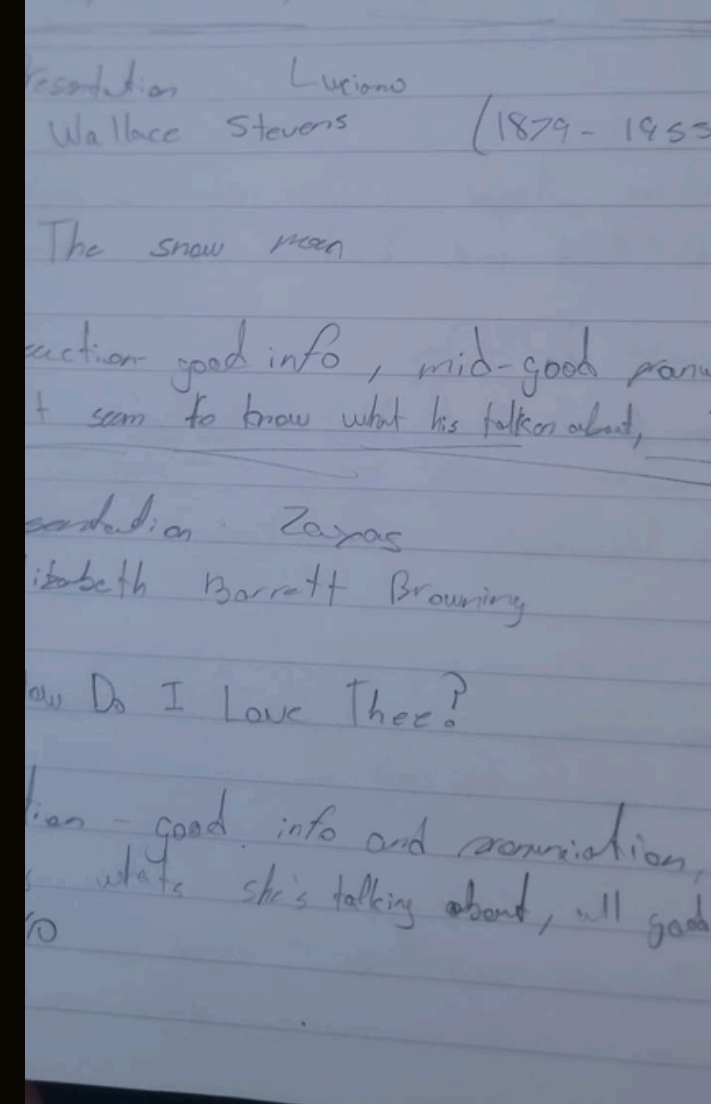 resentation Luciano
Wallace Stevens (1879 - 1955
The snow man
uction good info, mid-good pronu
t seam to know what his talken about,
sentation Zayas
izabeth Barrett Browning
ow Do I Love Thee?
tion - good info and pronunciation,
s whats she's talking about, all good
10